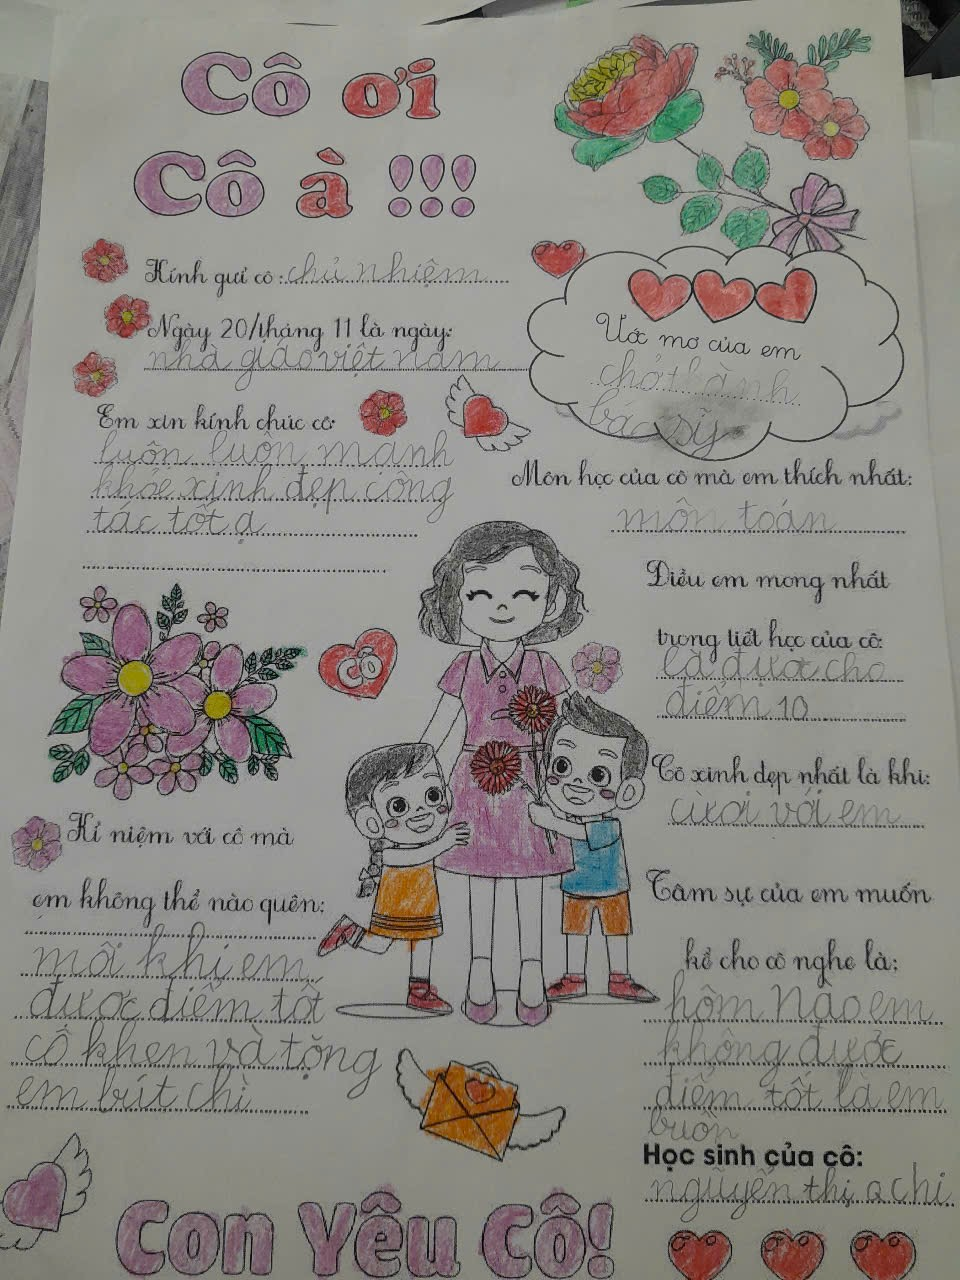 Cô ơi
Cô à !!!
Kính gửi cô: chủ nhiệm
Ngày 20/tháng 11 là ngày:
nhà giáo việt nam
Em xin kính chúc cô:
luôn luôn mạnh
khỏe xinh đẹp công
tác tốt ạ
Ước mơ của em
chở thành
bác sỹ
Môn học của cô mà em thích nhất:
môn toán
Điều em mong nhất
trong tiết học của cô:
là được cho
điểm 10
Cô xinh đẹp nhất là khi:
cười với em
CÔ
Kỉ niệm với cô mà
em không thể nào quên:
mỗi khi em
được điểm tốt
cô khen và tặng
em bút chì
Tâm sự của em muốn
kể cho cô nghe là:
hôm nào em
không được
điểm tốt là em
buồn
Học sinh của cô:
nguyễn thị chi
Con Yêu Cô!